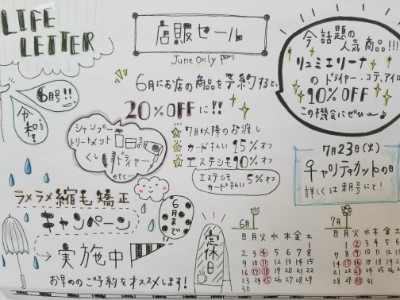 LIFE
LETTER
6月号!!
令和
店販セール
June Only
6月にお店の商品を予約すると、
20%OFFに!!
7月以降のお渡し
カード払い 15%オフ
エステシモ 10%オフ
エステシモ
カード払い 5%オフ
今話題の
人気商品!!!
リュミエリーナ
のドライヤー・コテ、アイロン
10%OFF
この機会にぜひ
シャンプー
トリートメント
くし
ドライヤー
etc
7月23日(火)
チャリティカットの日
詳しくは来月号にて!
ラメラメ縮毛矯正
キャンペーン
6月まで
→実施中
お早めのご予約をオススメします!
定休日
6月
日月火水木金土
7月
日月火水木金土